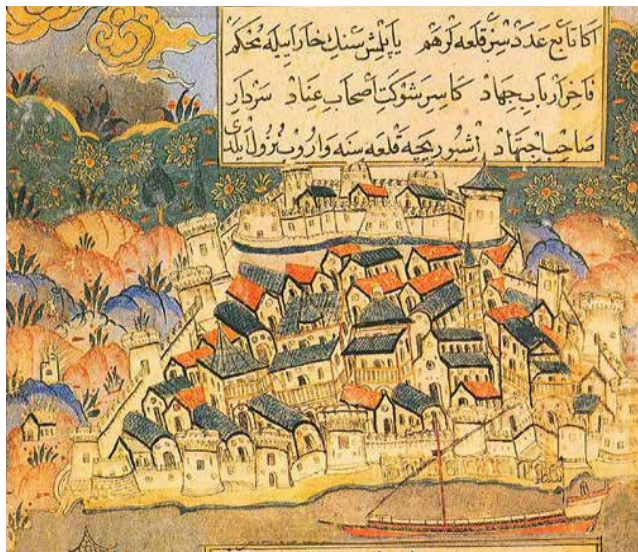 اکا تابع عدد سز قلعه لر هم یاپلمش سنك خارا بیله محکم
فاخر ارباب جهاد کاسر شوکت اصحاب عناد سردار
صاحب اجتهاد اشبو ریجه قلعه سنه واروب نزول ایلدی